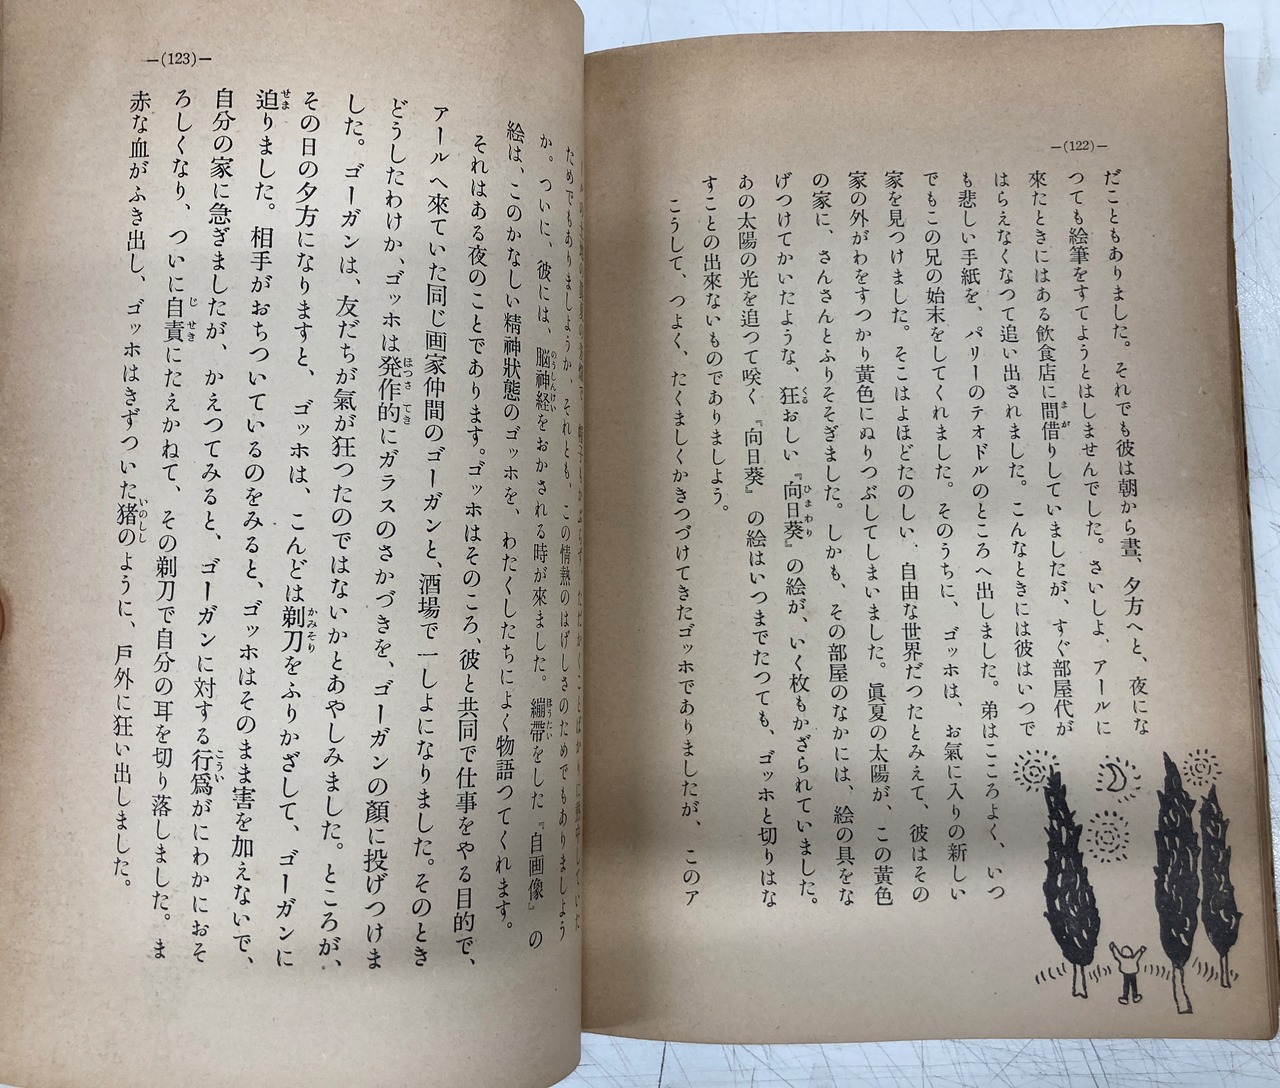 —(122)—
だこともありました。それでも彼は朝から晝、夕方へと、夜にな
つても絵筆をすてようとはしませんでした。さいしよ、アールに
来たときにはある飲食店に間借りしていましたが、すぐ部屋代が
はらえなくなつて追い出されました。こんなときには彼はいつで
も悲しい手紙を、パリーのテオドルのところへ出しました。弟はこころよく、いつ
でもこの兄の始末をしてくれました。そのうちに、ゴッホは、お氣に入りの新しい
家を見つけました。そこはよほどたのしい、自由な世界だつたとみえて、彼はその
家の外がわをすつかり黄色にぬりつぶしてしまいました。眞夏の太陽が、この黄色
の家に、さんさんとふりそそぎました。しかも、その部屋のなかには、絵の具をな
げつけてかいたような、狂おしい『向日葵』の絵が、いく枚もかざられていました。
あの太陽の光を追つて咲く『向日葵』の絵はいつまでたつても、ゴッホと切りはな
すことの出來ないものでありましよう。
こうして、つよく、たくましくかきつづけてきたゴッホでありましたが、このア
—(123)—
ためでもありましようか、それとも、この情熱のはげしさのためでもありましよう
か。ついに、彼には、脳神経をおかされる時が来ました。繃帶をした『自画像』の
絵は、このかなしい精神狀態のゴッホを、わたくしたちによく物語つてくれます。
それはある夜のことであります。ゴッホはそのころ、彼と共同で仕事をやる目的で、
アールへ來ていた同じ画家仲間のゴーガンと、酒場で一しよになりました。そのとき
どうしたわけか、ゴッホは発作的にガラスのさかづきを、ゴーガンの顏に投げつけま
した。ゴーガンは、友だちが氣が狂つたのではないかとあやしみました。ところが、
その日の夕方になりますと、ゴッホは、こんどは剃刀をふりかざして、ゴーガンに
迫りました。相手がおちついているのをみると、ゴッホはそのまま害を加えないで、
自分の家に急ぎましたが、かえつてみると、ゴーガンに対する行爲がにわかにおそ
ろしくなり、ついに自責にたえかねて、その剃刀で自分の耳を切り落しました。ま
赤な血がふき出し、ゴッホはきずついた猪のように、戸外に狂い出しました。